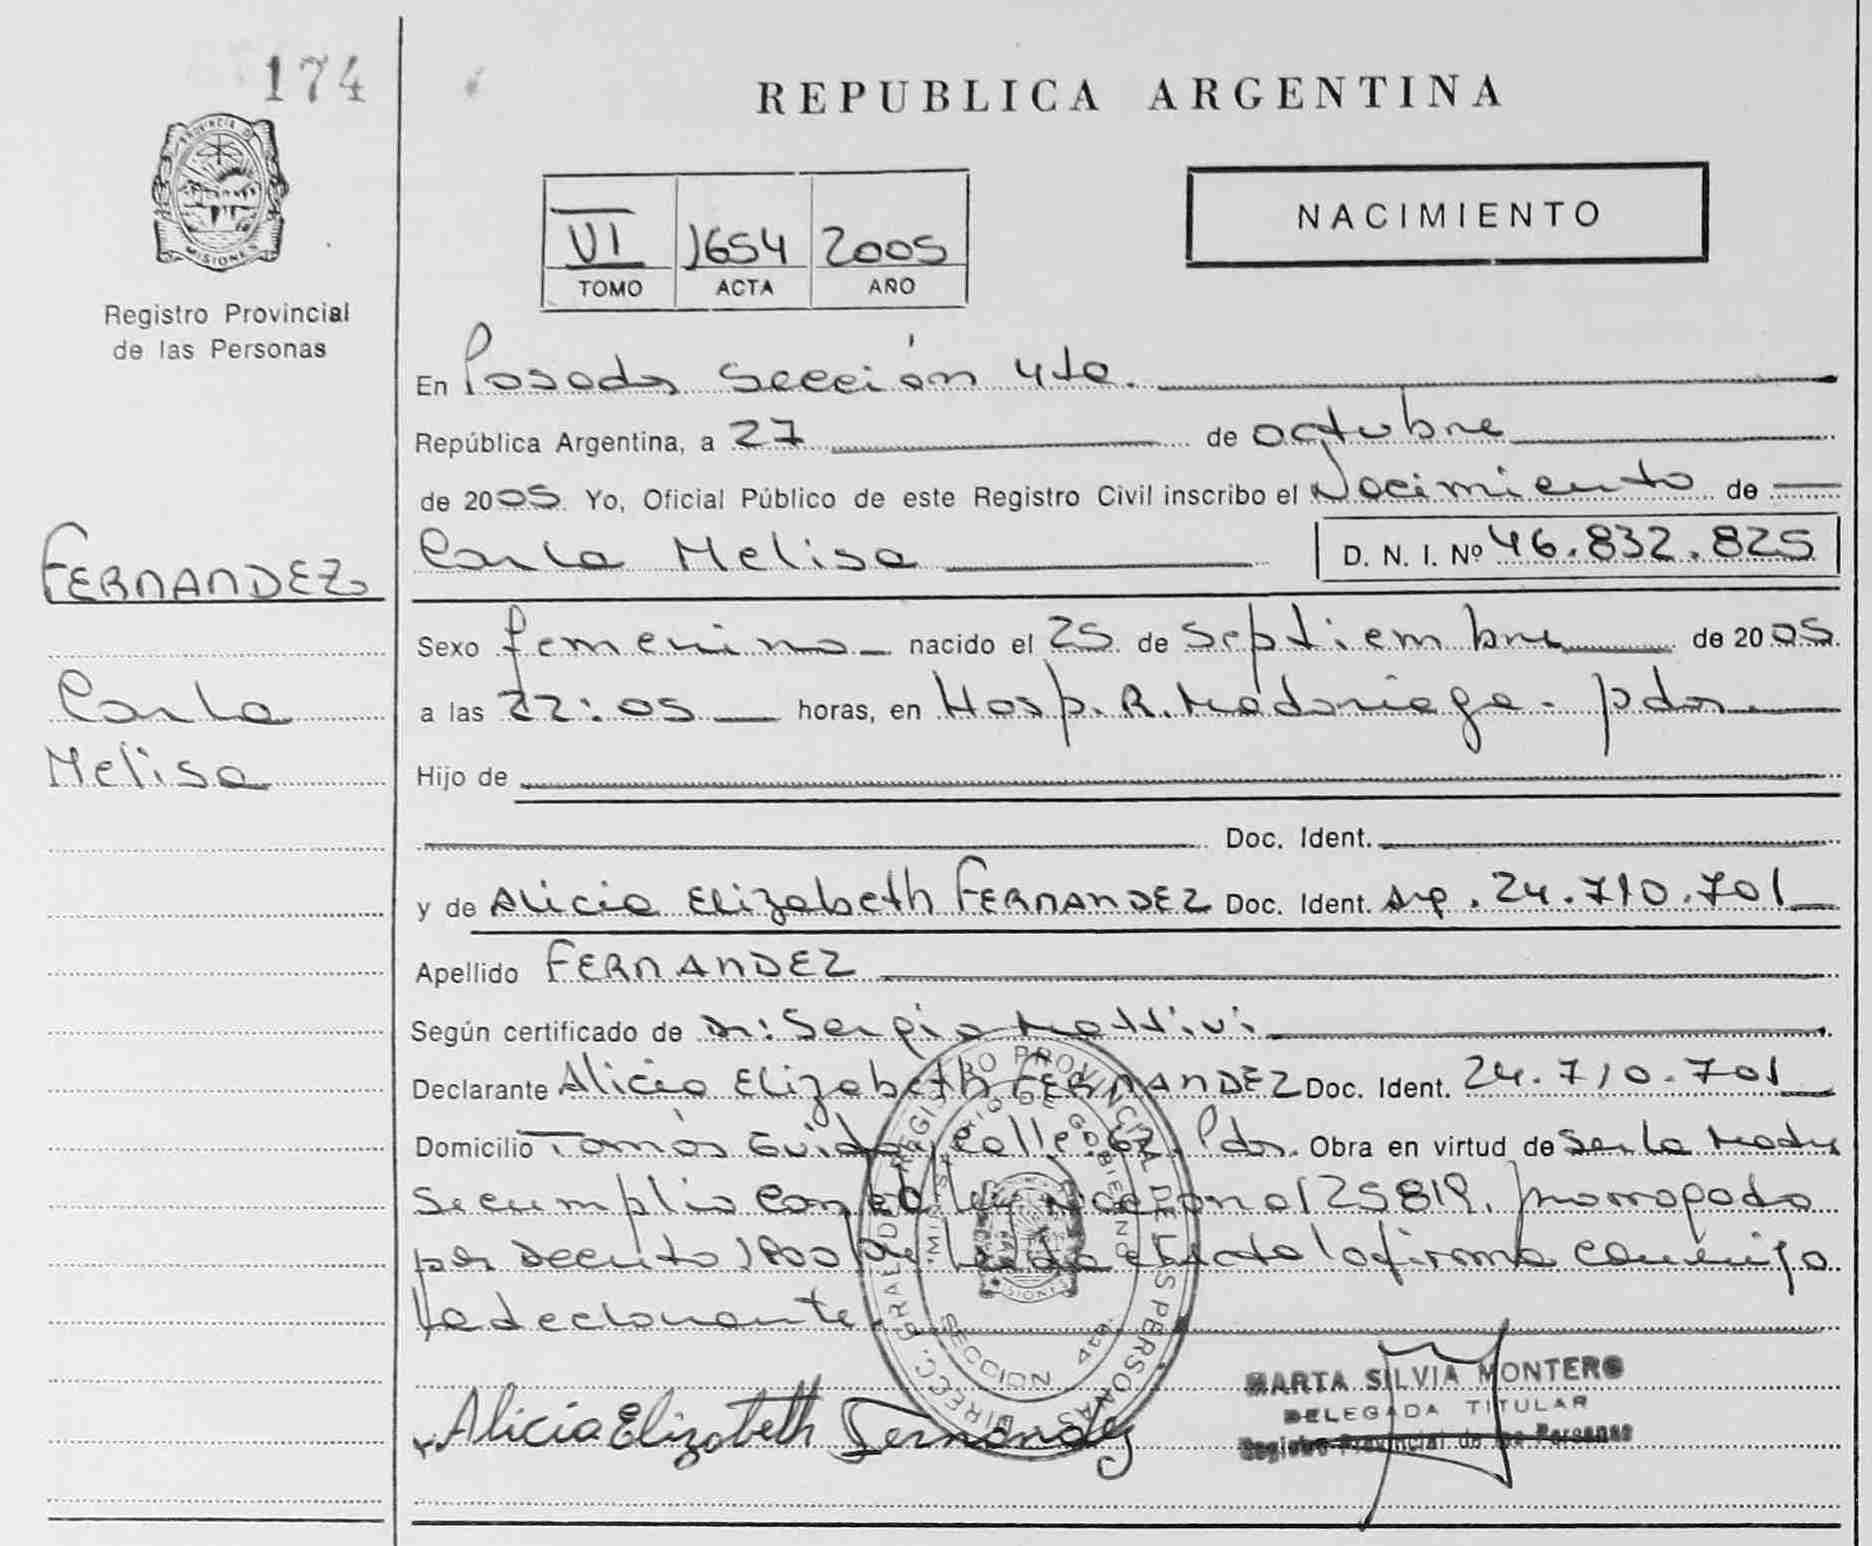 174
REPUBLICA ARGENTINA
PROVINCIA D MISIONES
NACIMIENTO
VI 1654 2005
TOMO ACTA AÑO
Registro Provincial
de las Personas
En Posadas Sección 4ta.
República Argentina, a 27 de octubre
de 2005 Yo, Oficial Público de este Registro Civil inscribo el Nacimiento de
FERNANDEZ
Carla Melisa D. N. I. Nº 46.832.825
Sexo femenino nacido el 25 de Septiembre de 2005.
Carla
a las 22:05 horas, en Hosp. R. Madariaga - pdas.
Melisa
Hijo de
Doc. Ident.
y de Alicia Elizabeth FERNANDEZ Doc. Ident. Arg. 24.710.701
Apellido FERNANDEZ
Según certificado de Dr: Sergio Mattivi
Declarante Alicia Elizabeth FERNANDEZ Doc. Ident. 24.710.701
Domicilio Tomás Guido, calle 62, Pdas. Obra en virtud de Ser la Madre
Se cumplio con la ley Nacional 25819, prorrogado
por Decreto 1800 Leida el acta la firma conmigo
la declarante.
DIRECC. GRAL. DE REGISTRO PROVINCIAL DE LAS PERSONAS
MINISTERIO DE GOBIERNO
SECCION 4ta.
MISIONES
Alicia Elizabeth Fernandez
MARTA SILVIA MONTERO
DELEGADA TITULAR
Registro Provincial de las Personas